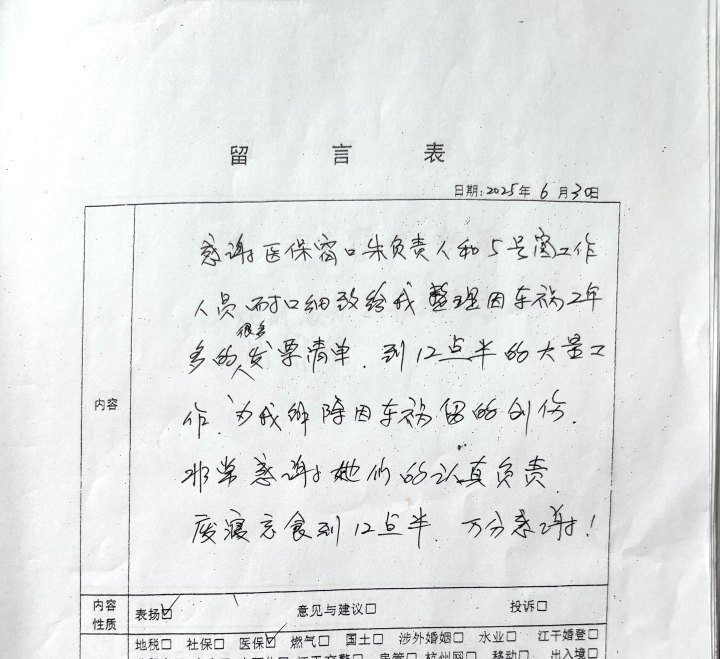 留言表
日期:2025年6月30日
感谢医保窗口朱负责人和5号窗工作
人员 耐心细致给我整理因车祸2年
多的很多发票清单.到12点半的大量工
作.为我解除因车祸留的创伤.
非常感谢她们的认真负责
废寝忘食到12点半.万分感谢!
内容
内容
性质
表扬☑ 意见与建议□ 投诉□
地税□ 社保□ 医保☑ 燃气□ 国土□ 涉外婚姻□ 水业□ 江干婚登□
江干交警□ 房管□ 杭州网□ 移动□ 出入境□